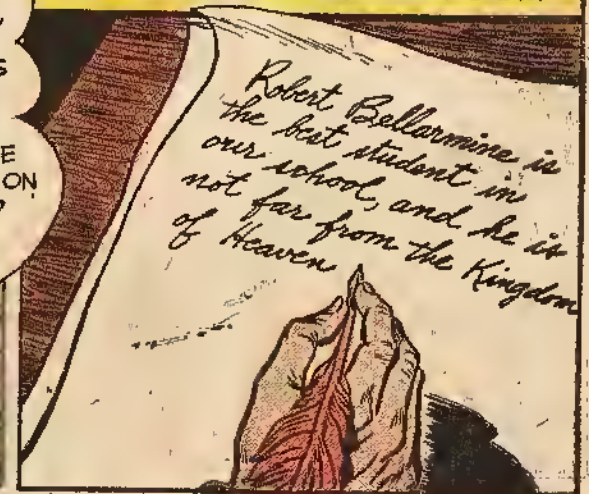 S
E
ON
Robert Bellarmine is
the best student in
our school, and he is
not far from the Kingdom
of Heaven